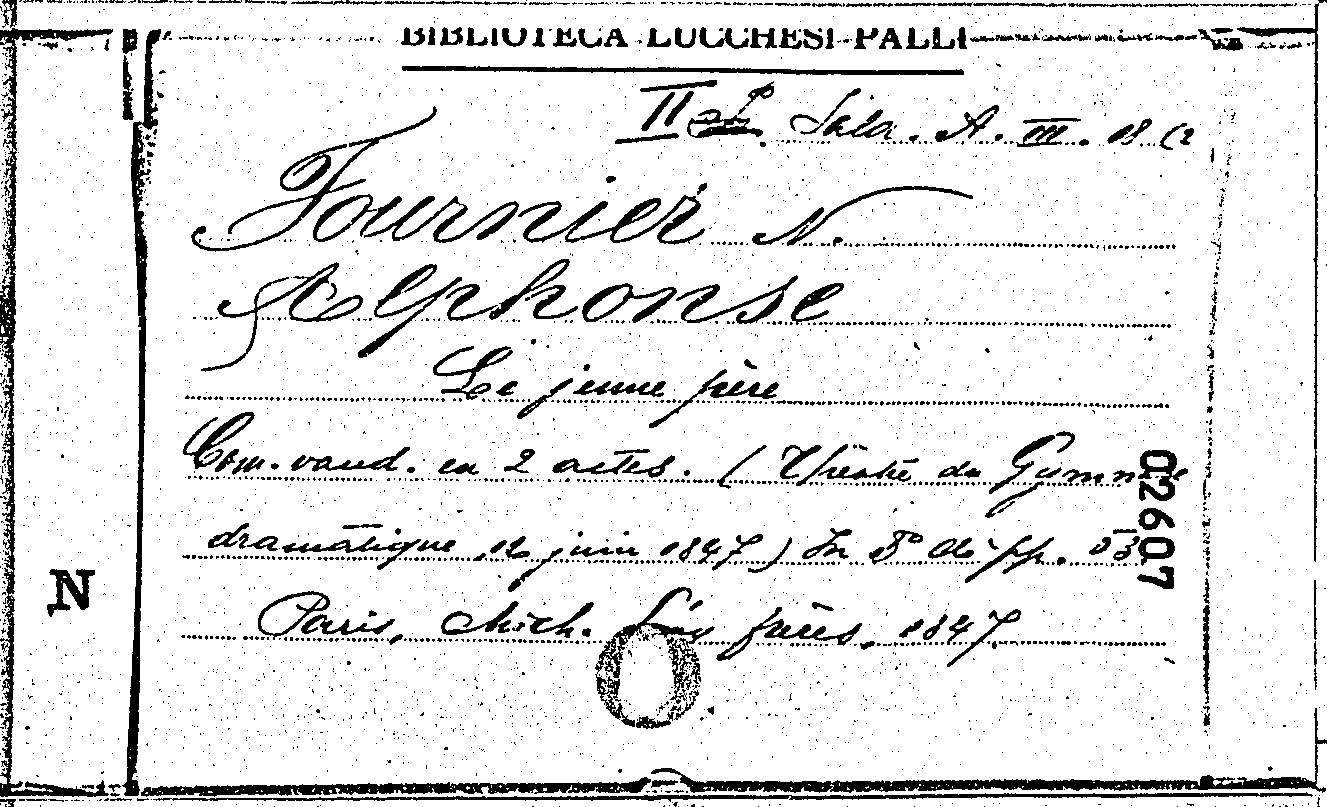 BIBLIOTECA LUCCHESI-PALLI
II Sala. A. III. 18 (2
Fournier N.
Alphonse
Le jeune père
Com. vaud. en 2 actes. (Théatre du Gymnase
dramatique 12 juin 1847) In 8° di pp. 53
Paris, Mich. Lévy frères, 1847.
02607
N